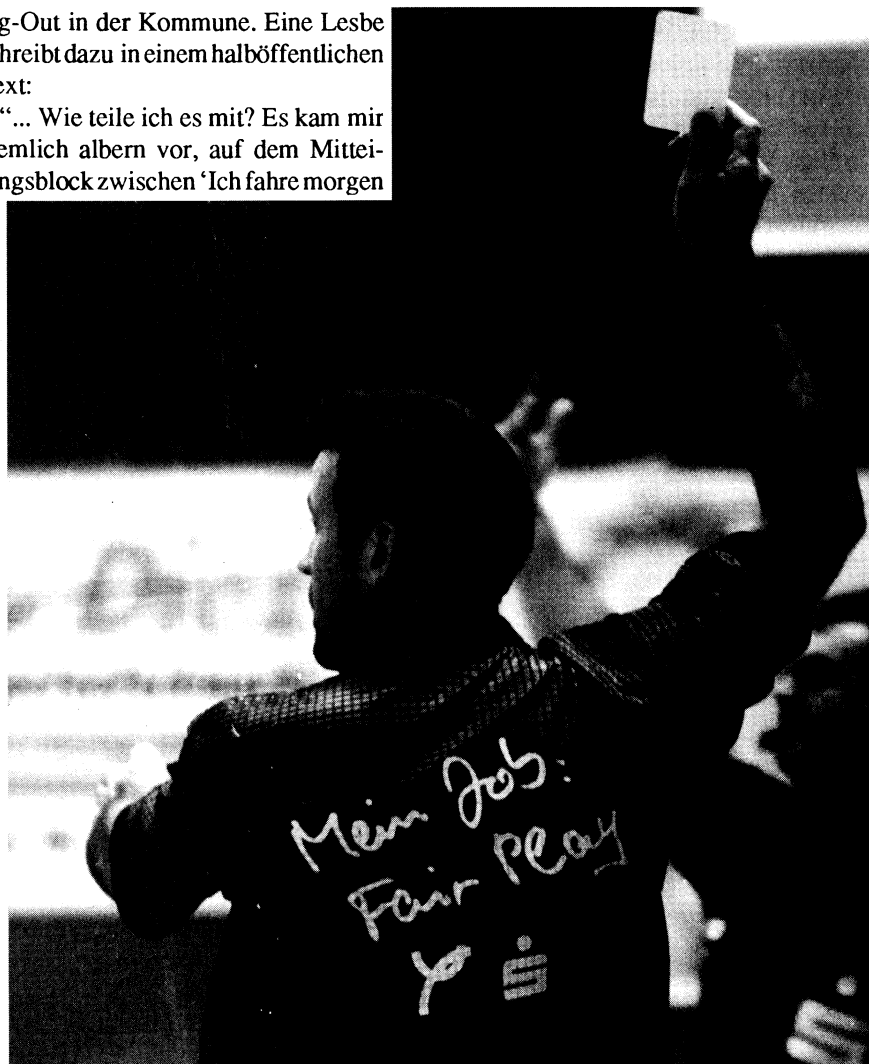 g-Out in der Kommune. Eine Lesbe
hreibt dazu in einem halböffentlichen
ext:
“... Wie teile ich es mit? Es kam mir
emlich albern vor, auf dem Mittei-
ngsblock zwischen ‘Ich fahre morgen
Mein Job:
Fair Play